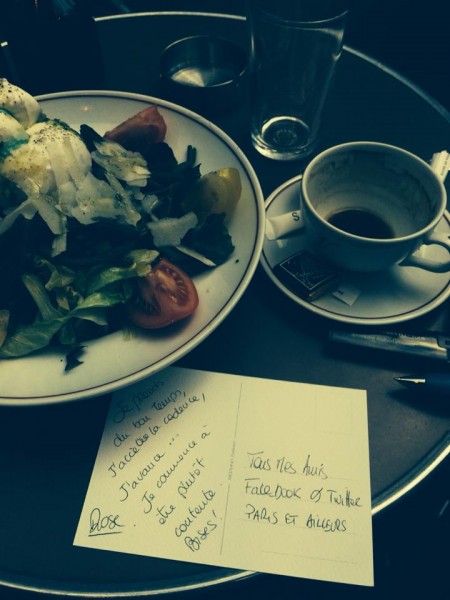 Je prends
du bon temps,
J'accélère la cadence,
J'avance...
Je commence à
être plutôt
contente.
Bises!
Rose
Tous mes Amis
Facebook & Twitter
PARIS ET AILLEURS